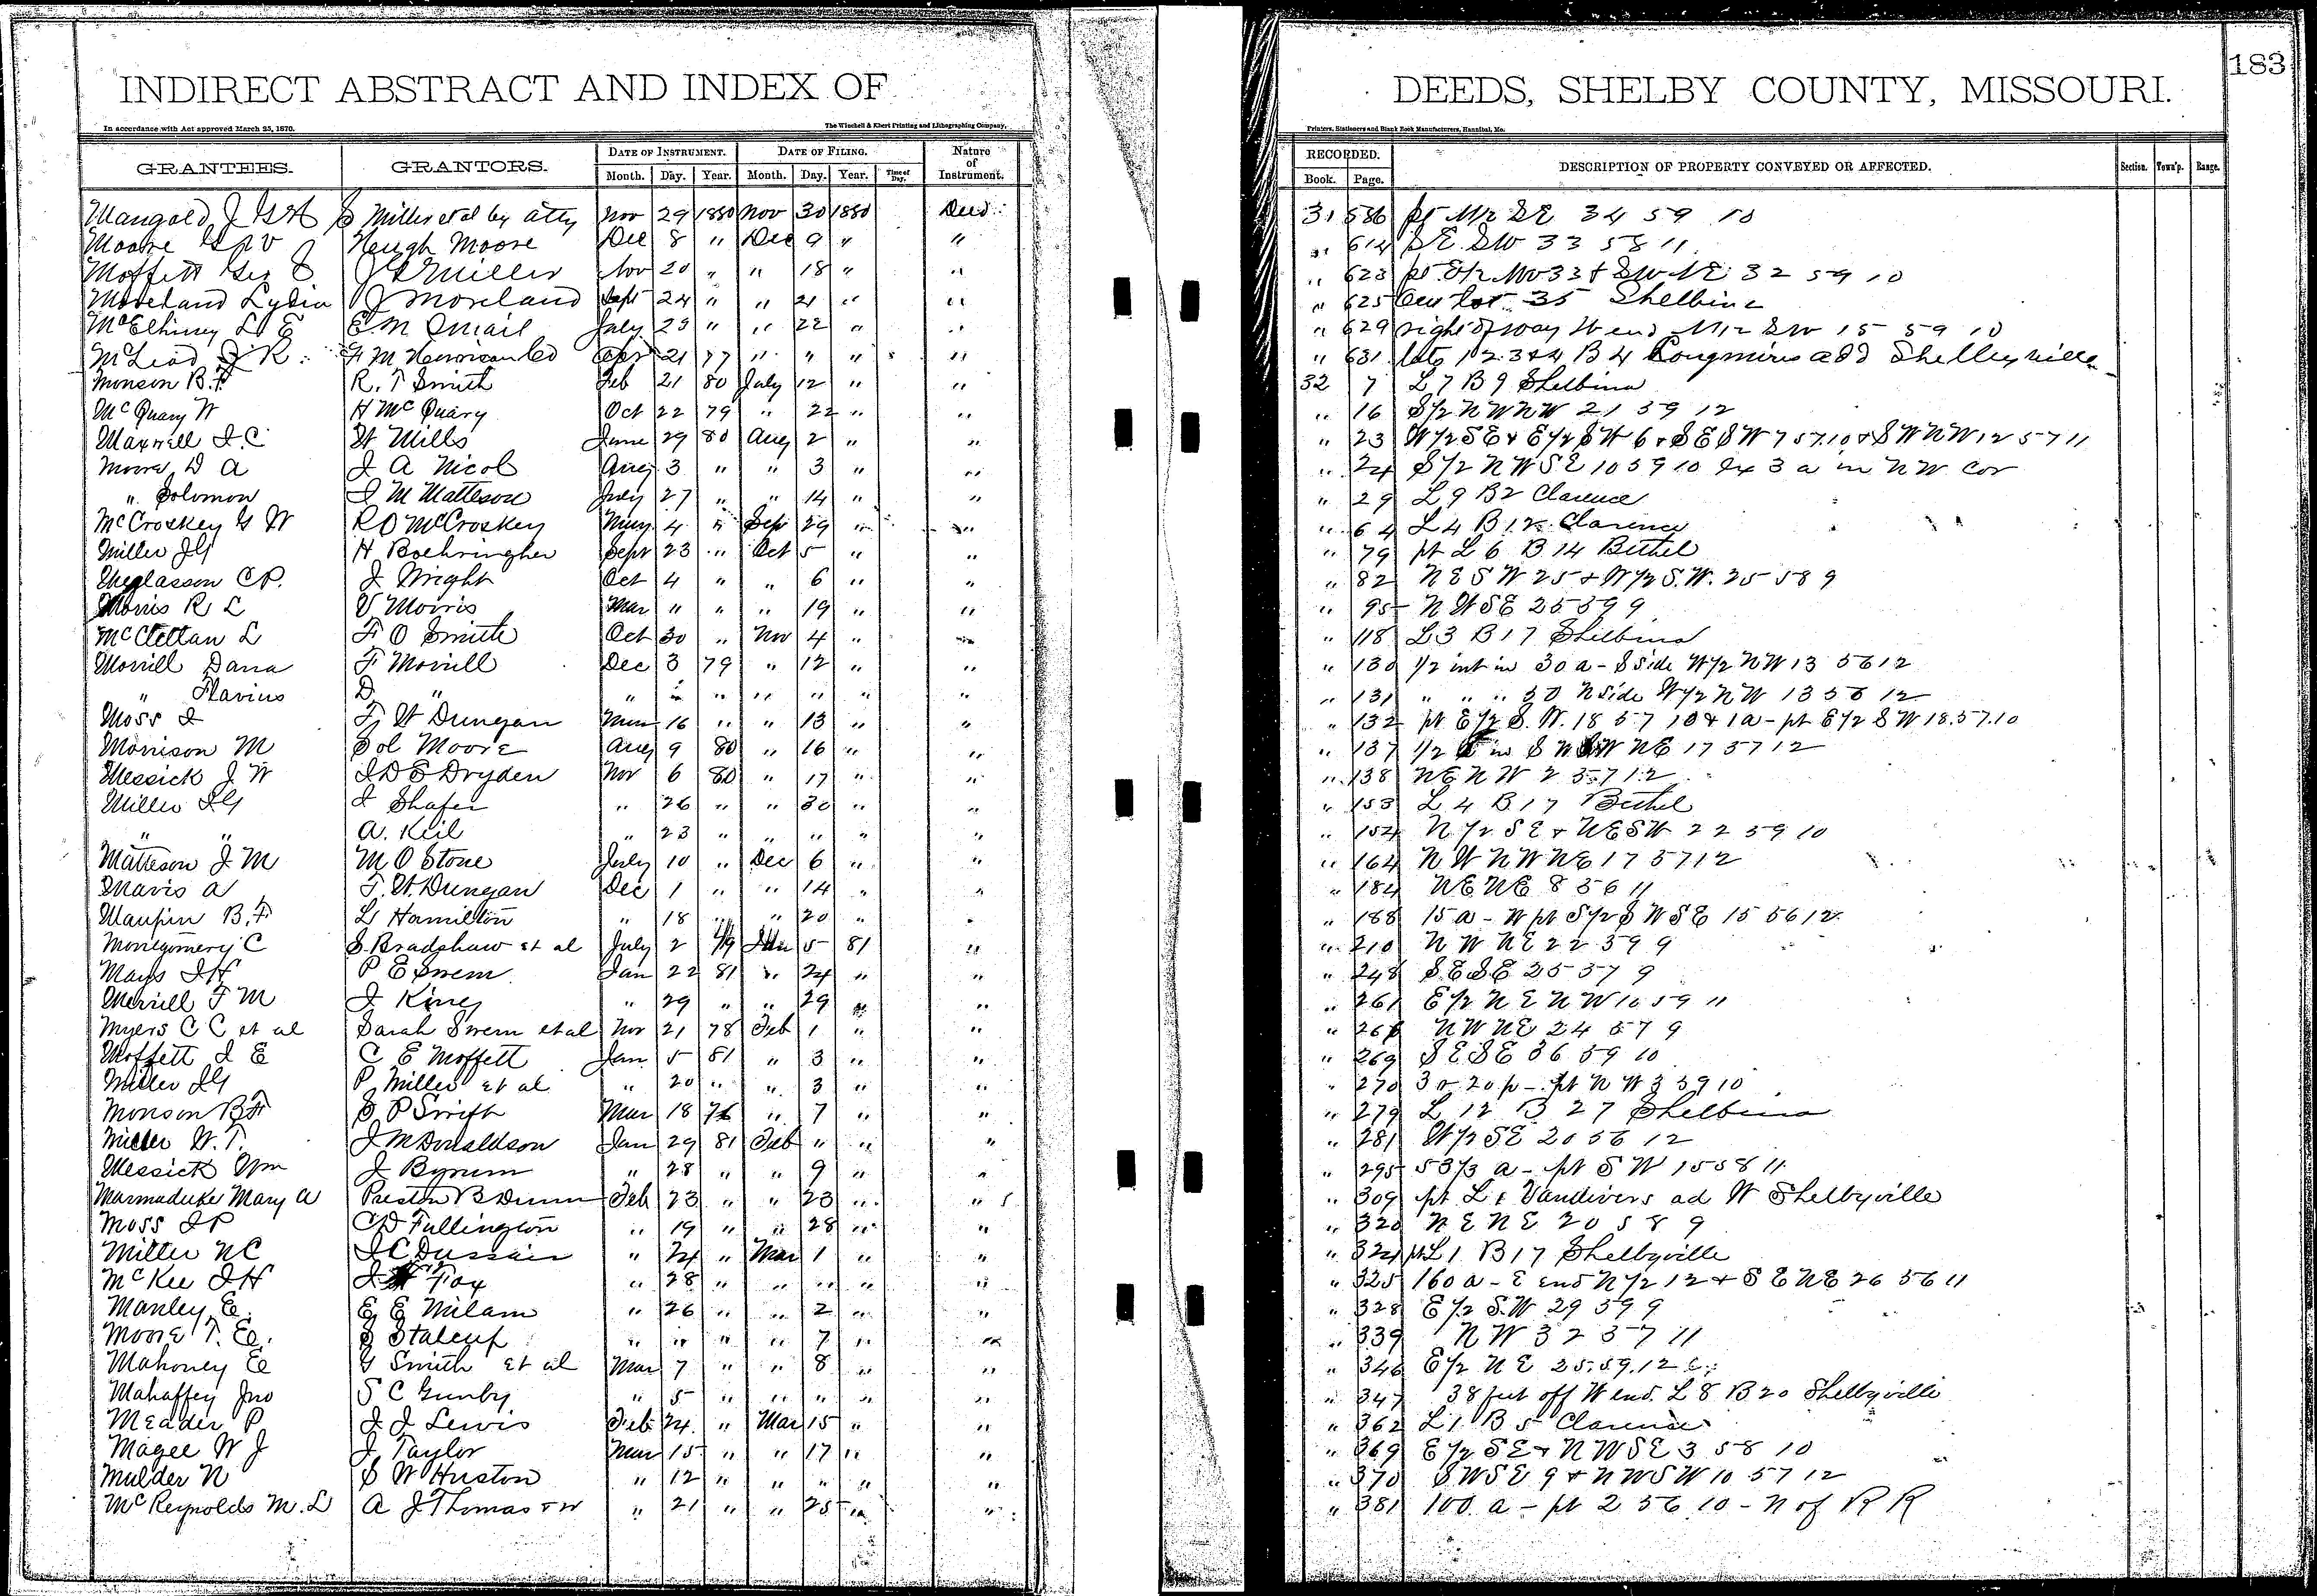 183
INDIRECT ABSTRACT AND INDEX OF DEEDS, SHELBY COUNTY, MISSOURI.
In accordance with Act approved March 25, 1870. The Winchell & Ebert Printing and Lithographing Company, Printers, Stationers and Blank Book Manufacturers, Hannibal, Mo.
GRANTEES. GRANTORS. DATE OF INSTRUMENT. DATE OF FILING. Nature of Instrument. RECORDED. DESCRIPTION OF PROPERTY CONVEYED OR AFFECTED. Section. Town'p. Range.
Month. Day. Year. Month. Day. Year. Time of Day. Book. Page.
Mangold J G & A S Miller et al by atty Nov 29 1880 Nov 30 1880 Deed 31 586 pt N1/2 SE 34 59 10
Moore G W Heugh Moore Dec 8 " Dec 9 " " " 614 SE SW 33 58 11
Moffett Geo S J G Miller Nov 20 " " 18 " " " 623 pt E1/2 NW 33 & SW NE 32 59 10
Moreland Lydia J Moreland Sept 24 " " 21 " " " 625 Out lot 35 Shelbina
McElhiney L E E M Omail July 23 " " 22 " " " 629 right of way W end N1/2 SW 15 59 10
McLeod J R F M Harrison Co Apr 21 77 " " " " " 631 lots 1 2 3 & 4 B 4 Longmires add Shelbyville
Monson B.F R. T Smith Feb 21 80 July 12 " " 32 7 L 7 B 9 Shelbina
McQuary W H McQuary Oct 22 79 " 22 " " " 16 S1/2 NW NW 21 59 12
Maxwell J.C W Mills June 29 80 Aug 2 " " " 23 W1/2 SE & E1/2 SW 6 & SE SW 7 57.10 & SW NW 12 57 11
Moore D A J A Nicol Aug 3 " " 3 " " " 24 S1/2 NW SE 10 59 10 Ex 3 a in NW cor
" Solomon J M Matteson July 27 " " 14 " " " 29 L 9 B 2 Clarence
McCroskey G W R O McCroskey May 4 " Sep 29 " " " 64 L 4 B 12 Clarence
Miller J G H. Boehringher Sept 23 " Oct 5 " " " 79 pt L 6 B 14 Bethel
Meglasson C P. J Wright Oct 4 " " 6 " " " 82 NE SW 25 & W1/2 S.W. 25 58 9
Morris R L V Morris Mar " " " 19 " " " 95 NW SE 25 59 9
McClellan L F O Smith Oct 30 " Nov 4 " " " 118 L 3 B 17 Shelbina
Morrill Dana F Morrill Dec 3 79 " 12 " " " 130 1/2 int in 30 a - S side W1/2 NW 13 56 12
" Flavius D. " " " " " " " " " 131 " " " 50 N side W1/2 NW 13 56 12
Moss J F W Dungan Mar 16 " " 13 " " " 132 pt E1/2 S.W. 18 57 10 & 1a - pt E1/2 SW 18.57.10
Morrison M Sol Moore Aug 9 80 " 16 " " " 137 1/2 in SW NE 17 57 12
Messick J W J D S Dryden Nov 6 80 " 17 " " " 138 NE NW 2 57 12
Miller J G J Shafer " 26 " " 30 " " " 153 L 4 B 17 Bethel
" " A. Keil " 23 " " " " " " 154 N1/2 SE & NE SW 22 59 10
Matteson J M M O Stone July 10 " Dec 6 " " " 164 NW NW NE 17 57 12
Mavis A F. W. Dungan Dec 1 " " 14 " " " 184 NE NE 8 56 11
Maupin B.F L Hamilton " 18 " " 20 " " " 188 15 a - W pt S1/2 SW SE 15 56 12
Montgomery C S. Bradshaw et al July 2 79 Jan 5 81 " " 210 NW NE 22 59 9
Mays J H P E Swem Jan 22 81 " 24 " " " 248 SE SE 25 57 9
Merrill F M J King " 29 " " 29 " " " 261 E1/2 NE NW 10 59 11
Myers C C et al Sarah Swem et al Nov 21 78 Feb 1 " " " 266 NW NE 24 57 9
Moffett J E C E Moffett Jan 5 81 " 3 " " " 269 SE SE 36 59 10
Miller J G P Miller et al " 20 " " 3 " " " 270 3 a 20 p - pt NW 3 59 10
Monson B F S P Swift Mar 18 76 " 7 " " " 279 L 12 B 27 Shelbina
Miller W. T. J M Donaldson Jan 29 81 Feb " " " " 281 W1/2 SE 20 56 12
Messick Wm J Bynum " 28 " " 9 " " " 295 53 1/3 a - pt SW 15 58 11
Marmaduke Mary A Preston B Dunn Feb 23 " " 23 " " " 309 pt L 1 Vandivers ad W Shelbyville
Moss J P C D Fullington " 19 " " 28 " " " 320 NE NE 20 58 9
Miller N C J C Dussair " 24 " Mar 1 " " " 324 pt L 1 B 17 Shelbyville
McKee J H J Fox " 28 " " " " " " 325 160 a - E end N1/2 12 & SE NE 26 56 11
Manley E. E E Milam " 26 " " 2 " " " 328 E1/2 S.W 29 59 9
Moore T. E. S Stalcup " " " " 7 " " " 339 NW 32 57 11
Mahoney E G Smith et al Mar 7 " " 8 " " " 346 E1/2 NE 25.59.12
Mahaffey Jno S C Gunby " 5 " " " " " " 347 38 feet off W end L 8 B 20 Shelbyville
Meader P J J Lewis Feb 24 " Mar 15 " " " 362 L 1 B 5 Clarence
Magee W J J Taylor Mar 15 " " 17 " " " 369 E1/2 SE & NW SE 3 58 10
Mulder N S W Huston " 12 " " " " " " 370 SW SE 9 & NW SW 10 57 12
McReynolds M. L A J Thomas & W " 21 " " 25 " " " 381 100 a - pt 2 56 10 - N of R R